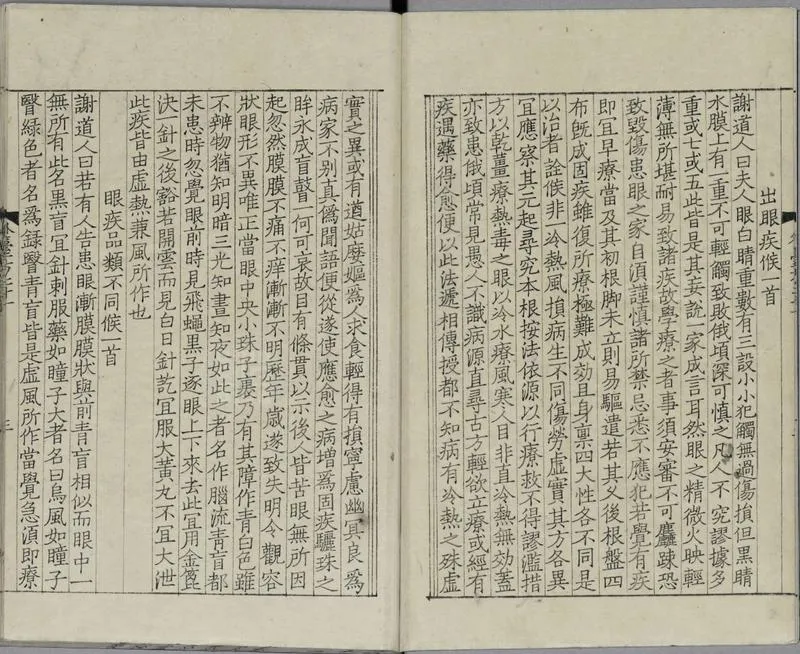 出眼疾候一首
謝道人曰夫人眼白睛重數有三設小小犯觸無過傷損但黑睛
水膜上有一重不可輕觸致敗俄頃深可慎之凡人不究謬據多
重或七或五此皆是其妄說一家成言耳然眼之精微火映輕
薄無所堪耐易致諸疾故學療之者事須安審不可麤踈恐
致毀傷患眼之家自須謹慎諸所禁忌悉不應犯若覺有疾
即宜早療當及其初根脚未立則易驅遣若其久後根盤四
布旣成固疾雖復所療極難成効且身稟四大性各不同是
以治者詮候非一冷熱風損病生不同傷勞虛實其方各異
宜應察其元起尋究本根按法依源以行療救不得謬濫措
方以乾薑療熱毒之眼以冷水療風寒人目非直冷熱無効蓋
亦致患俄頃常見愚人不識病源直尋古方輕欲立療或經有
疾遇藥得愈便以此法遞相傳授都不知病有冷熱之殊虛
實之異或有遒姑廢嫗爲人求食輕得有損寧慮幽冥良爲
病家不別真僞聞語便從遂使應愈之病增爲固疾驪珠之
眸永成盲瞽一何可哀故目有條貫以示後人皆苦眼無所因
起忽然膜膜不痛不痒漸漸不明歷年歲遂致失明令觀容
狀眼形不異唯正當眼中央小珠子裏乃有其障作青白色雖
不辨物猶知明暗三光知晝知夜如此之者名作腦流青盲都
未患時忽覺眼前時見飛蠅黑子逐眼上下來去此宜用金篦
決一針之後豁若開雲而見白日針訖宜服大黃丸不宜大泄
此疾皆由虛熱兼風所作也
眼疾品類不同候一首
謝道人曰若有人告患眼漸膜膜狀與前青盲相似而眼中一
無所有此名黑盲宜針刺服藥如瞳子大者名曰烏風如瞳子
翳綠色者名爲錄翳青盲皆是虛風所作當覺急須即療